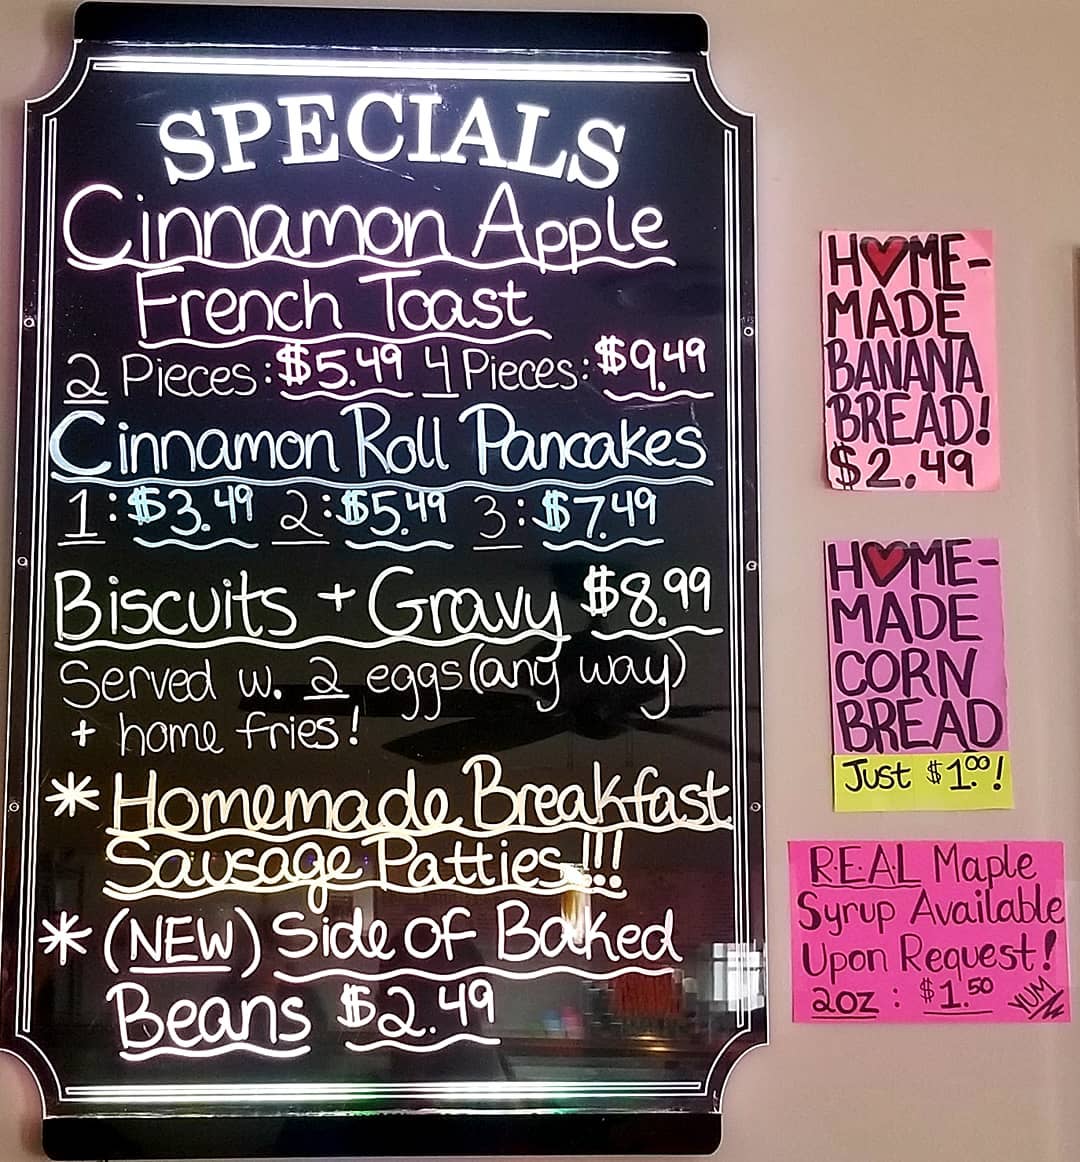 SPECIALS
Cinnamon Apple
French Toast
2 Pieces: $5.49 4 Pieces: $9.49
Cinnamon Roll Pancakes
1: $3.49 2: $5.49 3: $7.49
Biscuits + Gravy $8.99
Served w. 2 eggs (any way)
+ home fries!
* Homemade Breakfast
Sausage Patties!!!
* (NEW) Side of Baked
Beans $2.49
H♥ME-
MADE
BANANA
BREAD!
$2.49
H♥ME-
MADE
CORN
BREAD
Just $1.00!
R·E·A·L Maple
Syrup Available
Upon Request!
2oz : $1.50 YUM